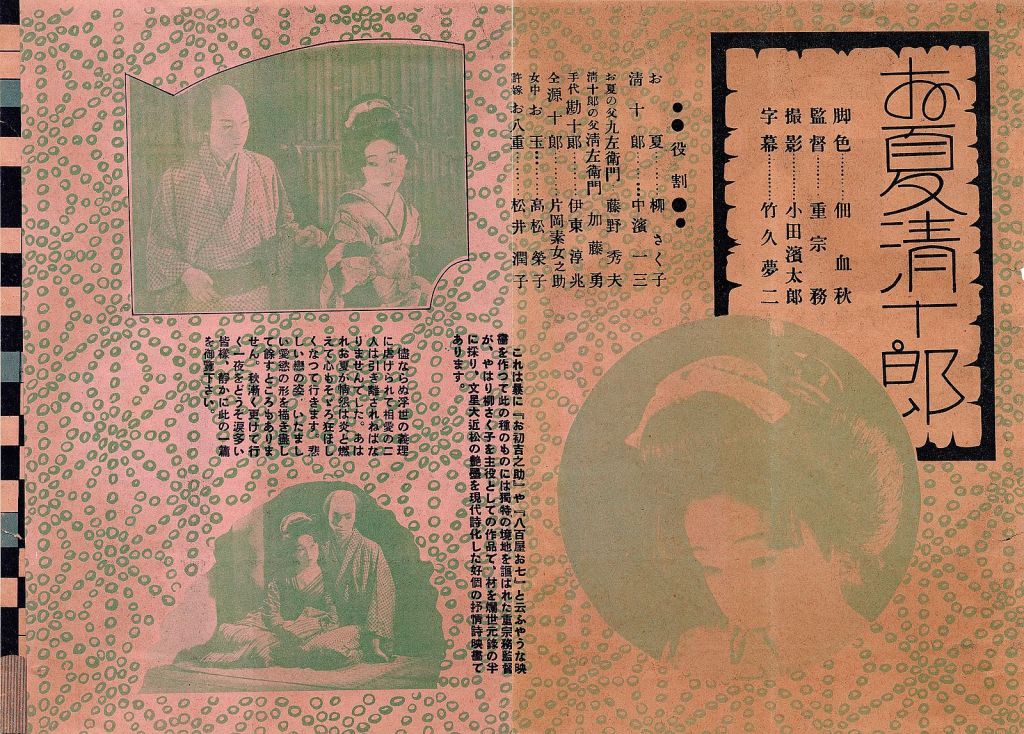 お夏清十郎
脚色………佃血秋
監督………重宗務
撮影………小田濱太郎
字幕………竹久夢二
●●役割●●
お夏………柳さく子
清十郎………中濱一三
お夏の父九左衛門…藤野秀夫
清十郎の父清左衛門 加藤勇
手代勘十郎………伊東淳兆
仝源十郎………片岡素女之助
女中お玉………高松榮子
許嫁お八重………松井潤子
これは曩に『お初吉之助』や『八百屋お七』と云ふやうな映
畫を作つて此の種のものには獨特の境地を謳はれた重宗務監督
が、やはり柳さく子を主役としての作品で、材を爛世元錄の半
に採り、文星大近松の艶墨を現代詩化した好個の抒情詩映畫で
あります。
儘ならぬ浮世の義理
に虐げられて相愛の二
人は引き離されねばな
りませんでした。あは
れお夏が情怨は炎と燃
えて心もそゞろ狂ほし
くなつて行きます。悲
しい戀の姿、いたまし
い愛慾の形を描き盡し
て餘すところもありま
せん。秋漸く更けて行
く一夜をどうぞ涙多い
皆樣、靜かに此の一篇
を御覽下さい。